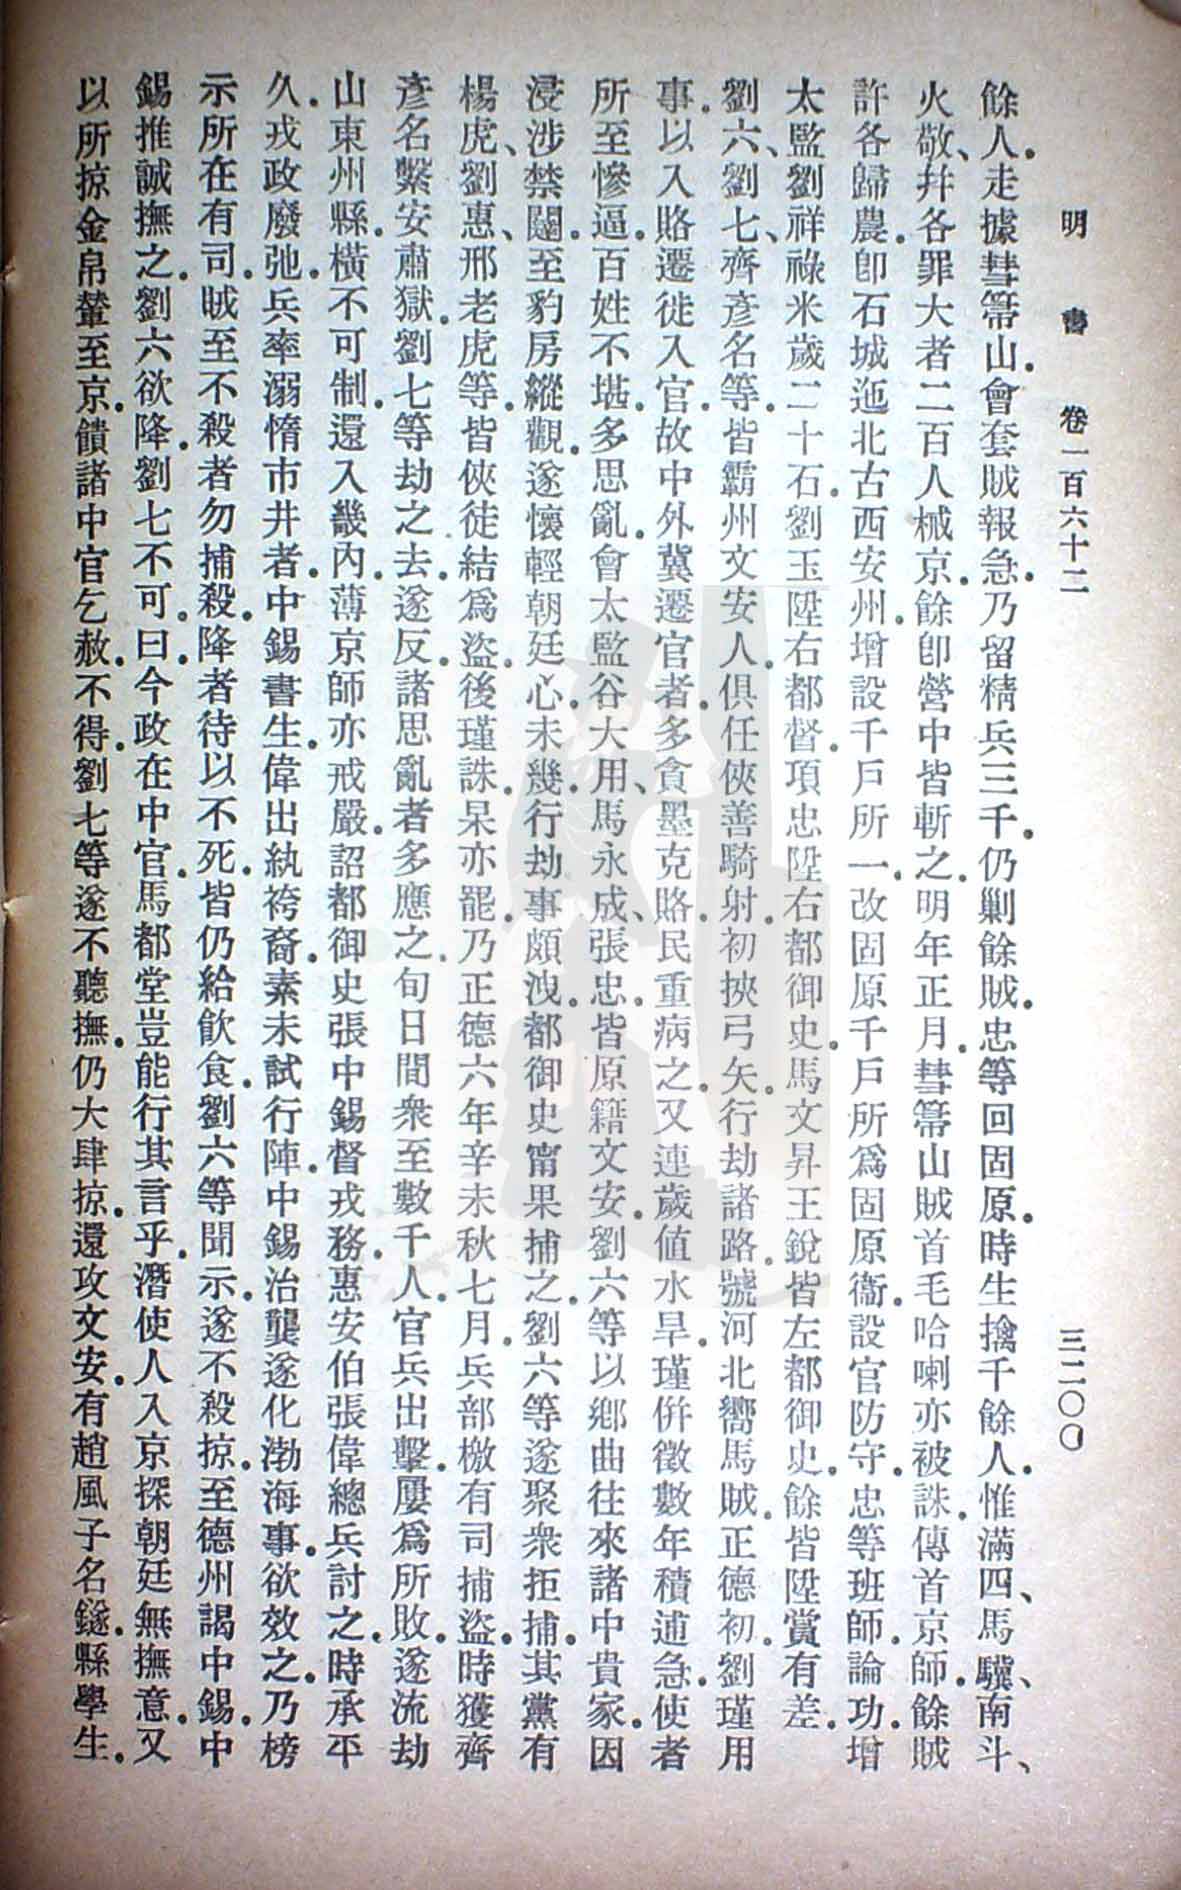 明書 卷一百六十二 三二〇〇
餘人走據彗箒山會套賊報急乃留精兵三千仍剿餘賊忠等回固原時生擒千餘人惟滿四、馬驥、南斗、
火敬、幷各罪大者二百人械京餘卽營中皆斬之明年正月彗箒山賊首毛哈喇亦被誅傳首京師餘賊
許各歸農卽石城迤北古西安州增設千戶所一改固原千戶所爲固原衞設官防守忠等班師論功增
太監劉祥祿米歲二十石劉玉陞右都督項忠陞右都御史馬文昇王銳皆左都御史餘皆陞賞有差
劉六、劉七、齊彥名等皆霸州文安人俱任俠善騎射初挾弓矢行劫諸路號河北嚮馬賊正德初劉瑾用
事以入賂遷徙入官故中外冀遷官者多貪墨克賂民重病之又連歲值水旱瑾併徵數年積逋急使者
所至慘逼百姓不堪多思亂會太監谷大用、馬永成、張忠皆原籍文安劉六等以鄕曲往來諸中貴家因
浸涉禁闥至豹房縱觀遂懷輕朝廷心未幾行劫事頗洩都御史甯果捕之劉六等遂聚衆拒捕其黨有
楊虎、劉惠、邢老虎等皆俠徒結爲盜後瑾誅杲亦罷乃正德六年辛未秋七月兵部檄有司捕盜時獲齊
彥名繫安肅獄劉七等劫之去遂反諸思亂者多應之旬日間衆至數千人官兵出擊屢爲所敗遂流劫
山東州縣橫不可制還入畿內薄京師亦戒嚴詔都御史張中錫督戎務惠安伯張偉總兵討之時承平
久戎政廢弛兵率溺惰市井者中錫書生偉出紈袴裔素未試行陣中錫治龔遂化渤海事欲效之乃榜
示所在有司賊至不殺者勿捕殺降者待以不死皆仍給飮食劉六等聞示遂不殺掠至德州謁中錫中
錫推誠撫之劉六欲降劉七不可曰今政在中官馬都堂豈能行其言乎潛使人入京探朝廷無撫意又
以所掠金帛輦至京饋諸中官乞赦不得劉七等遂不聽撫仍大肆掠還攻文安有趙風子名鐩縣學生